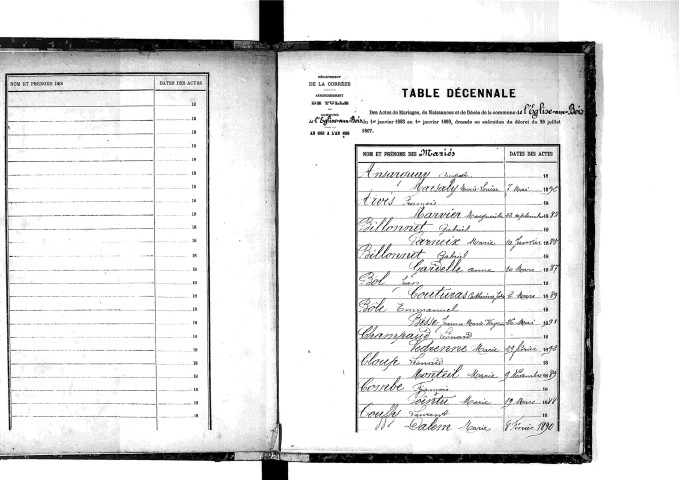 NOM ET PRÉNOMS DES
DATES DES ACTES
18
18
18
18
18
18
18
18
18
18
18
18
18
18
18
18
18
18
18
18
18
18
18
18
DÉPARTEMENT
DE LA CORRÈZE
ARRONDISSEMENT
DE TULLE
COMMUNE
de l'Église-aux-Bois
AN 1883 A L'AN 1893
TABLE DÉCENNALE
Des Actes de Mariages, de Naissances et de Décès de la commune de l'Église-aux-Bois
du 1er janvier 1883 au 1er janvier 1893, dressée en exécution du décret du 20 juillet
1807.
NOM ET PRÉNOMS DES Mariés
DATES DES ACTES
18
Marie Louise 7 Mai 18
Arvis François 18
Marvier Marguerite 18
Billonnet Gabriel 18
Parneix Marie 10 Janvier 18
Billonnet Gabriel 18
Gardelle anne 10 Mars 1887
Bol Jean 18
Couturas Mars 1889
Bôle Emmanuel 18
Besse Jeanne Marie Mai 1891
Champaud Léonard 18
Vedrenne Marie février 18
Cloup Léonard 18
Monteil Marie 9 Novembre 1889
Combe François 18
Pointu Marie 19 Mars 1888
Couffy Laurent 18
Calem Marie 8 février 1890